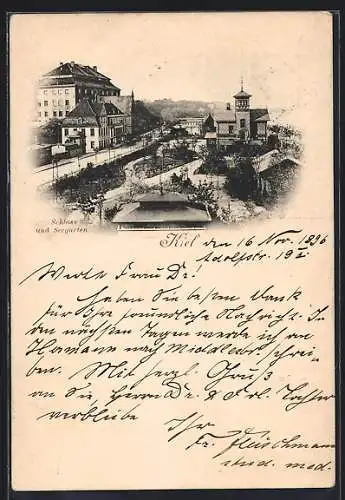 Schloss
und Seegarten
Kiel den 16 Nov. 1896
Adolfstr. 19 I
Werte Frau Dr.!
Haben Sie besten Dank
für Ihre freundliche Nachricht. In
den nächsten Tagen werde ich an
Hamann nach Middlebr. schrei-
ben. Mit herzl. Gruß
an Sie, Herrn Dr. & Frl. Tochter
verbleibe Ihr
Fr. Fleischmann
stud. med.